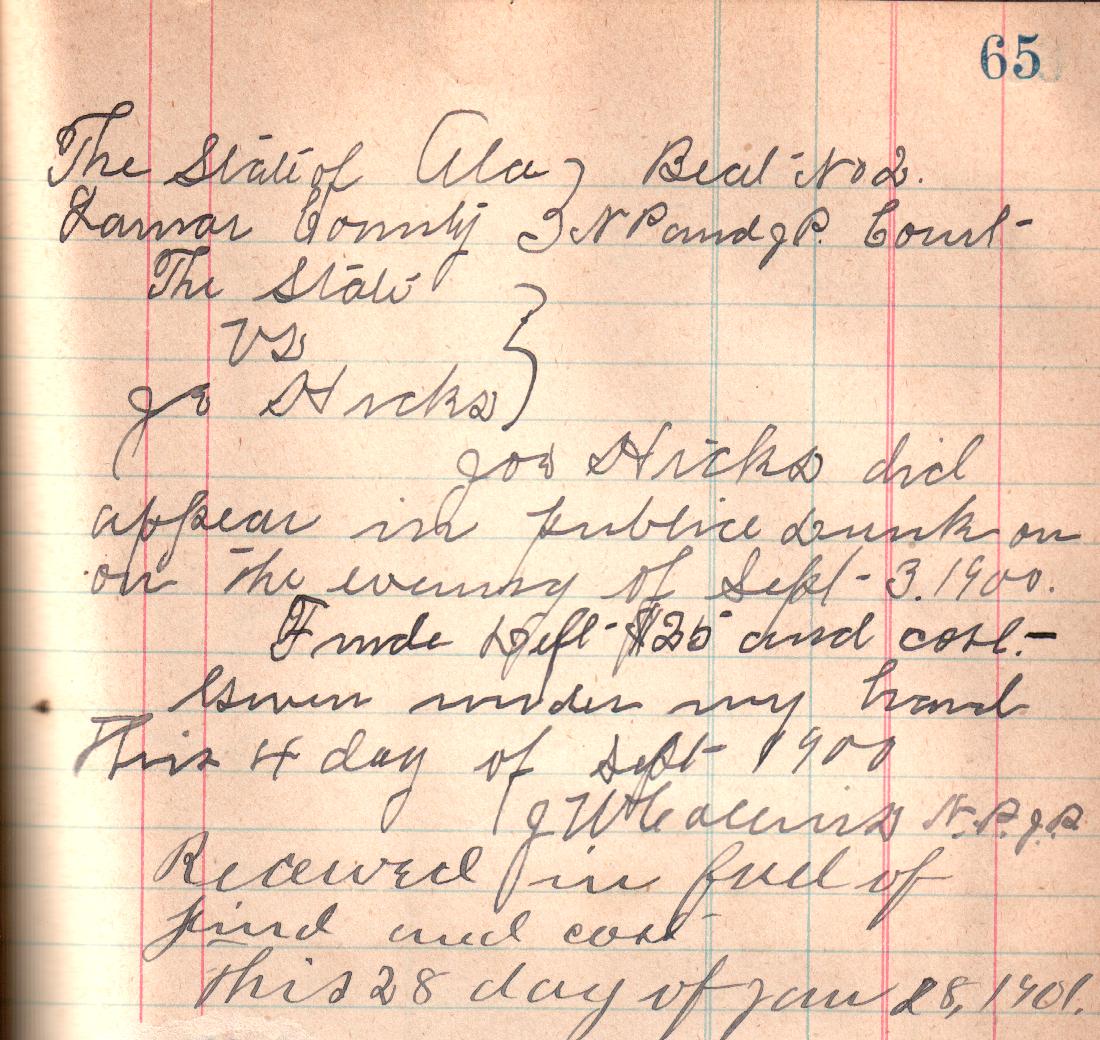 65
The State of Ala } Beat No 2.
Lamar County } N P and J P. Court
The State
vs }
Jo Hicks
Joe Hicks did
appear in publice drunk on
on the evening of Sept 3. 1900.
Deft $25 and cost.
Given under my hand
This 4 day of Sept 1900
J W N.P. J.P.
Received in full of
find and cost
This 28 day of Jan 28, 1901.